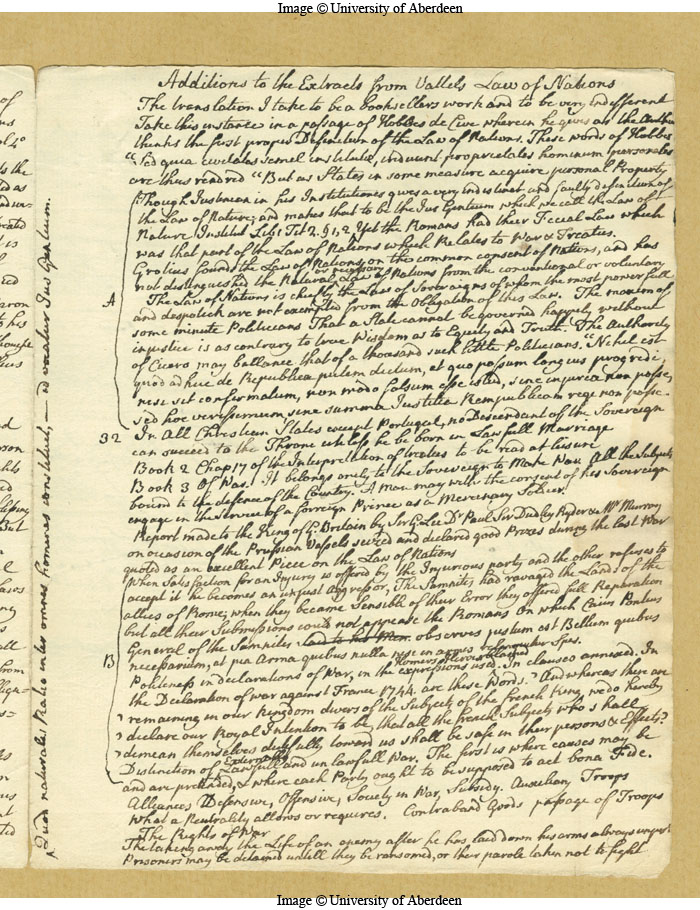 Image © University of Aberdeen
Additions to the Extracts from Vattels Law of Nations
The translation I take to be a booksellers work and to be very indifferent
Take this instance in a passage of Hobbes de Cive wherein he gives as the Author
thinks the first proper Definition of the Law of Nations. These words of Hobbes
"Sed quia civitates semel institutæ, induunt proprietates hominum personales
are thus rendred "But as States in some measure acquire personal Property
Though Justinian in his Institutiones gives a very indistinct and faulty definition of
the Law of Nature; and makes that to be the Jus Gentium which we call the Law of
Nature Institut Lib 1 Tit 2. § 1, 2 Yet the Romans had their Fecial Law which
was that part of the Law of Nations which Relates to War & Treaties.
Grotius founds the Law of Nations, on the common consent of Nations, and has
not distinguished the Natural, or necessary Law of Nations from the conventional or voluntary
A
The Law of Nations is chiefly the Law of Sovereigns of whom the most powerfull
and despotick are not exempted from the Obligation of this Law. The maxim of
some minute Politicians That a State cannot be governed happily without
injustice is as contrary to true Wisdom as to Equity and Truth. The Authority
of Cicero may ballance that of a thousand such little Politicians. Nihel est
quod adhuc de Republica putem dictum, et quo possum longius progredi,
nisi sit confirmatum, non modo falsum esse istud, sine injuria non posse,
sed hoc verissimum sine summa Justitia Rempublicam regi non posse.
32 In All Christian States except Portugal, no Descendant of the Sovereign
can succeed to the Throne unless he be born in Lawfull Marriage
Book 2 Chap 17 of the Interpretation of treaties to be read at leisure
Book 3 Of War. It belongs only to the Sovereign to Make War All the Subjects
bound to the defence of the Country. A man may with the consent of his Sovereign
engage in the Service of a foreign Prince as a Mercenary Soldier.
Report made to the King of G: Britain by Sir G: Lee Dr Paul Sir Dudley Ryder & Mr Murray
on occasion of the Prussian Vessels seized and declared good Prizes during the last War
quoted as an excellent Piece on the Law of Nations
When Satisfaction for an Injury is offered by the Injurious party and the other refuses to
accept it he becomes an unjust Aggressor, The Samnites had ravaged the Lands of the
allies of Rome; when they became Sensible of their Error they offered full Reparation
but all their Submissions could not appease the Romans On which Caius Pontius
General of the Samnites said to his Men observes justum est Bellum quibus
necessarium, et pia Arma quibus nulla nisi in armis relinquitur Spes.
B
Politeness in declarations of War, in the expressions used. In clauses annexed. In
Homers Heroes blamed
the Declaration of war against France 1744. are these Words. "And whereas there are
" remaining in our Kingdom divers of the Subjects of the French King, we do hereby
" declare our Royal Intention to be, that all the French Subjects who shall
" demean themselves dutifully toward us shall be safe in their persons & Effects"
Distinction of Lawfull and unlawfull War. The first is where causes may be
externally
and are pretended, & where each Party ought to be supposed to act bona Fide.
Alliances Defensive, Offensive, Society in War, Subsidy. Auxiliary Troops
What a Neutrality allows or requires. Contraband Goods passage of Troops
The Rights of War
The taking away the Life of an enemy after he has laid down his arms always unjust
Prisoners may be detained untill they be ransomed, or their parole taken not to fight
Quod naturalis Ratio inter omnes homines constituit, — id vocatur Jus Gentium.
Image © University of Aberdeen